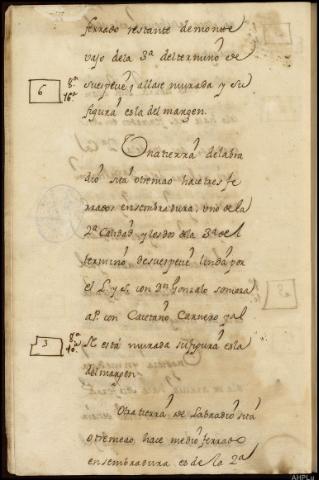 ferrado restante demonte
vajo dela 3ª deltermino de
suespecie, allase murada y su
6
figura es la del margen.
Una tierra de labra
dio sita otiemao hace tres fe
rrados ensembradura, uno dela
2ª Calidad, y los dos dela 3ª del
termino desuespecie linda por
el L. y S. con Dn Gonzalo
al P. con Caietano Carnero, y al
3
N. está murada su figura es la
del margen.
Otra tierra de Labradio sita
otiemao, hace medio ferrado
ensembradura es de la 2ª
AHPLu